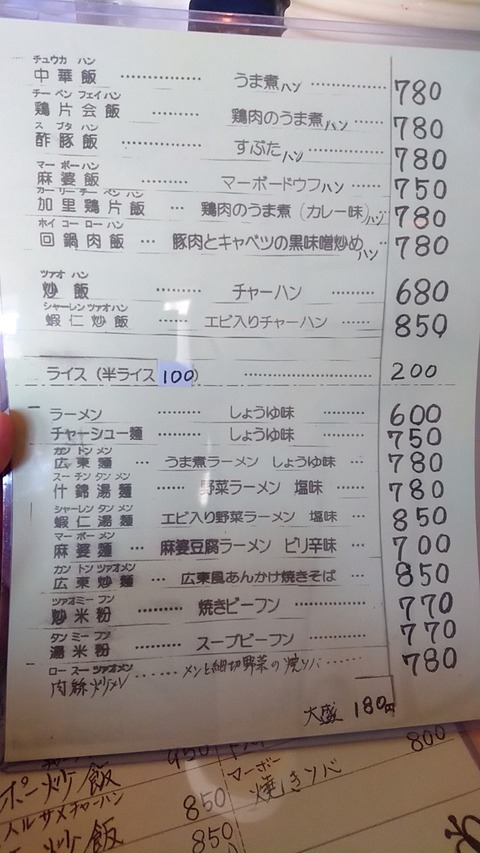 チュウカ ハン
中華飯 ………… うま煮ハン ………… 780
チー ペン フェイハン
鶏片会飯 ………… 鶏肉のうま煮ハン … 780
ス ブタ ハン
酢豚飯 ………… すぶたハン ………… 780
マー ボー ハン
麻婆飯 ………… マーボードウフハン … 750
カーリー チー ペン ハン
加里鶏片飯 … 鶏肉のうま煮(カレー味)ハン 780
ホイ コー ロー ハン
回鍋肉飯 … 豚肉とキャベツの黒味噌炒めハン 780
ツァオ ハン
炒飯 ……… チャーハン ………… 680
シャーレン ツァオハン
蝦仁炒飯 …… エビ入りチャーハン …… 850
ライス(半ライス100) ………… 200
ラーメン ……… しょうゆ味 ………… 600
チャーシュー麺 ……… しょうゆ味 ………… 750
カン トン メン
広東麺 … うま煮ラーメン しょうゆ味 … 780
スー チン タン メン
什錦湯麺 …… 野菜ラーメン 塩味 …… 780
シャーレン タン メン
蝦仁湯麺 エビ入り野菜ラーメン 塩味 … 850
マー ボー メン
麻婆麺 … 麻婆豆腐ラーメン ピリ辛味 … 700
カン トン ツァオメン
広東炒麺 … 広東風あんかけ焼きそば … 850
ツァオミー フン
炒米粉 ……… 焼きビーフン ………… 770
タン ミー フン
湯米粉 ……… スープビーフン ………… 770
ロー スー ツァオメン
肉絲炒メン …… メンと細切野菜の焼ソバ …… 780
大盛 180円
950
ポー炒飯
マーボー
焼きソバ 800
850
炒飯 850